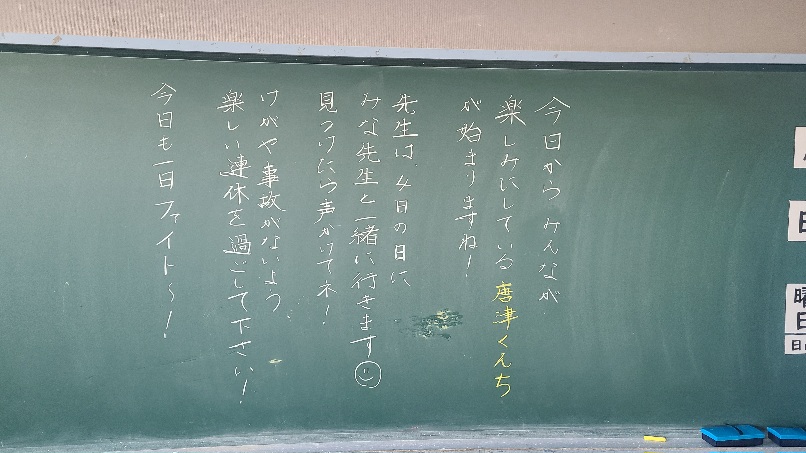 今日から みんなが
楽しみにしている 唐津くんち
が始まりますね!
先生は、4日の日に
みな先生と一緒に行きます
見つけたら声かけてネ!
けがや事故がないよう、
楽しい連休を過ごして下さい!
今日も一日ファイト〜!
曜
日